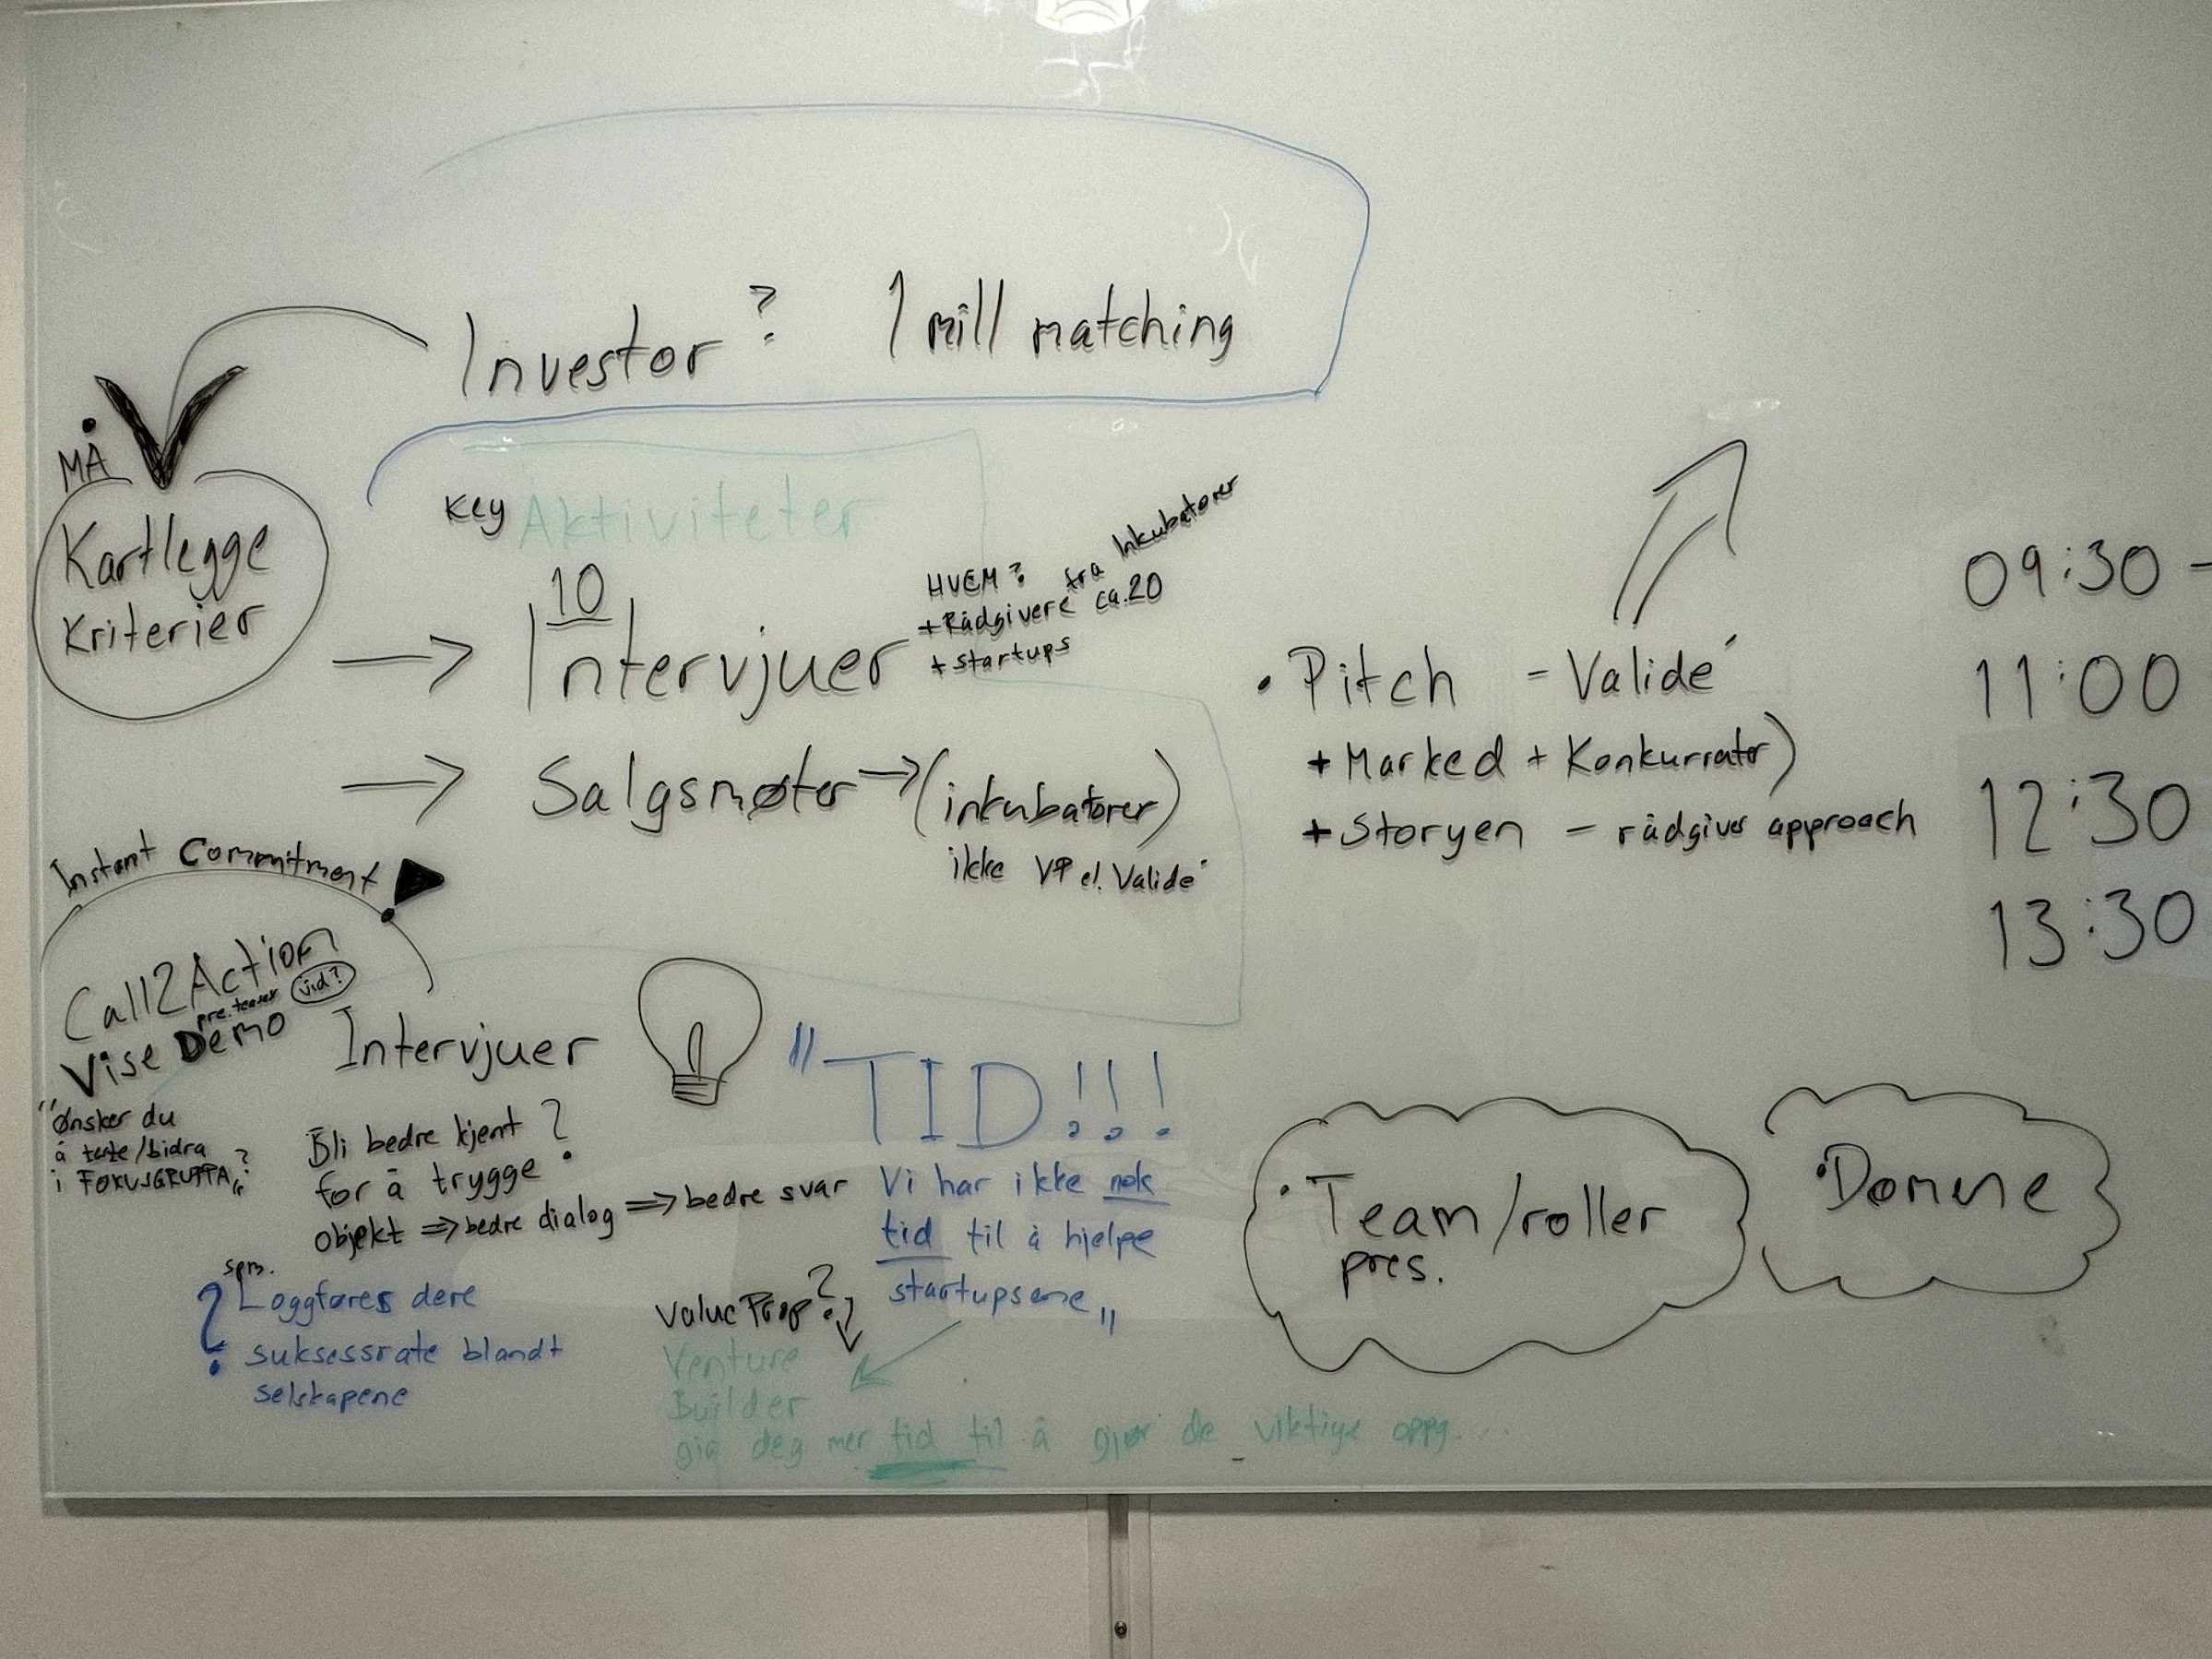 Investor? 1 mill matching
MÅ
Kartlegge
Kriterier
Key Aktiviteter
10
Intervjuer
HVEM?
+ Rådgivere fra Inkubatorer
ca. 20
+ startups
Salgsmøter → (inkubatorer)
ikke VP el. Validé
• Pitch - Validé
+ Marked + Konkurrator)
+ Storyen - rådgiver approach
09:30 -
11:00
12:30
13:30
Instant Commitment
Call2Action
pre.teaser vid?
Vise Demo
"Ønsker du
å teste/bidra
i FOKUSGRUPPA"?
Intervjuer
Bli bedre kjent?
for å trygge
objekt ⇒ bedre dialog ⇒ bedre svar
spm.
? Loggføres dere
suksessrate blandt
selskapene
"TID!!!
Vi har ikke nok
tid til å hjelpe
startupsene"
Value Prop?
Venture
Builder
gir deg mer tid til å gjør de viktige oppg...
• Team/roller
pres.
• Domene